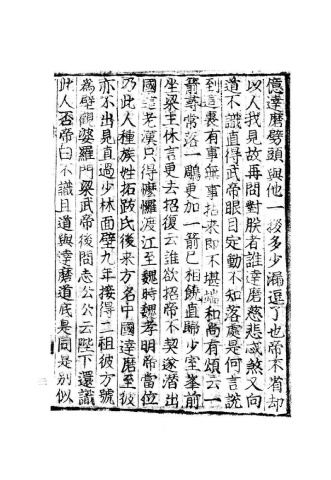 億達磨劈頭與他一拶多少漏逗了也帝不省却
以人我見故再問對朕者誰達磨慈悲忒煞又向
道不識直得武帝眼目定動不知落處是何言說
到這裏有事無事拈来即不堪端和尚有頌云一
箭尋常落一鵰更加一箭已相饒直歸少室峯前
坐梁主休言更去招復云誰欲招帝不契遂潜出
國這老漢只得懡㦬渡江至魏時魏孝明帝當位
乃此人種族姓拓跋氏後来方名中國達磨至彼
亦不出見直過少林面壁九年接得二祖彼方號
為壁觀婆羅門梁武帝後問志公公云陛下還識
此人否帝曰不識且道與達磨道底是同是別似